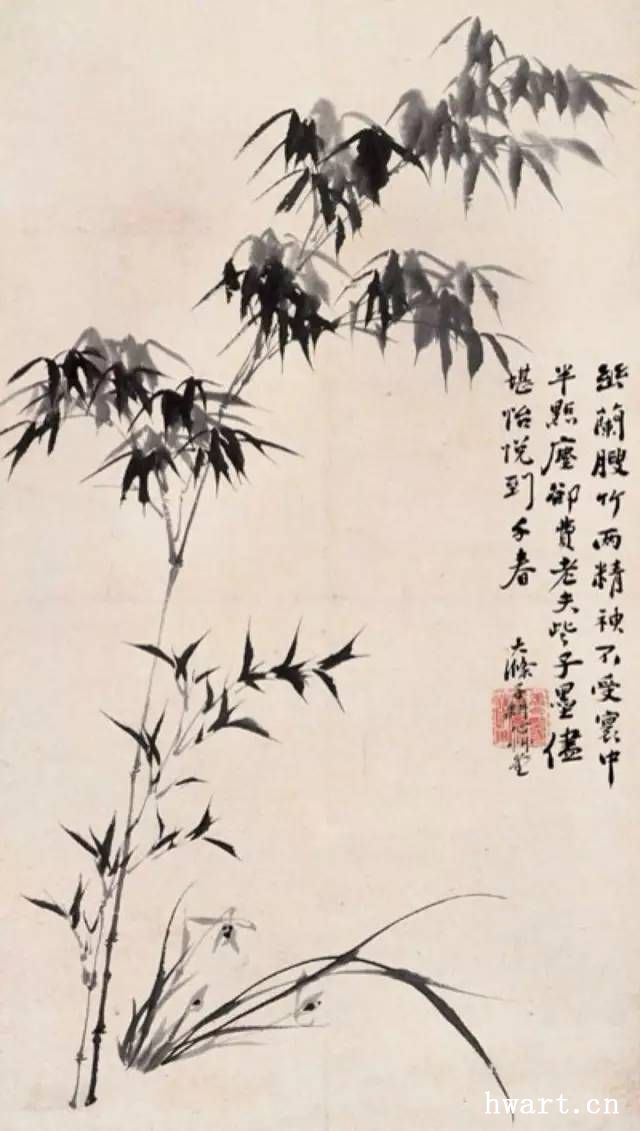 幽蘭膄竹兩精神不受寰中
半點塵卻費老夫些子墨儘
堪怡悅到千春
大滌子耕心艸堂
hwart.cn